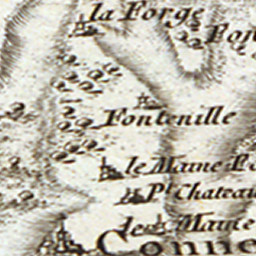 la Forge
Fon
Fontenille
le Maine Po
Pt. Chateau
le Maine
Conne